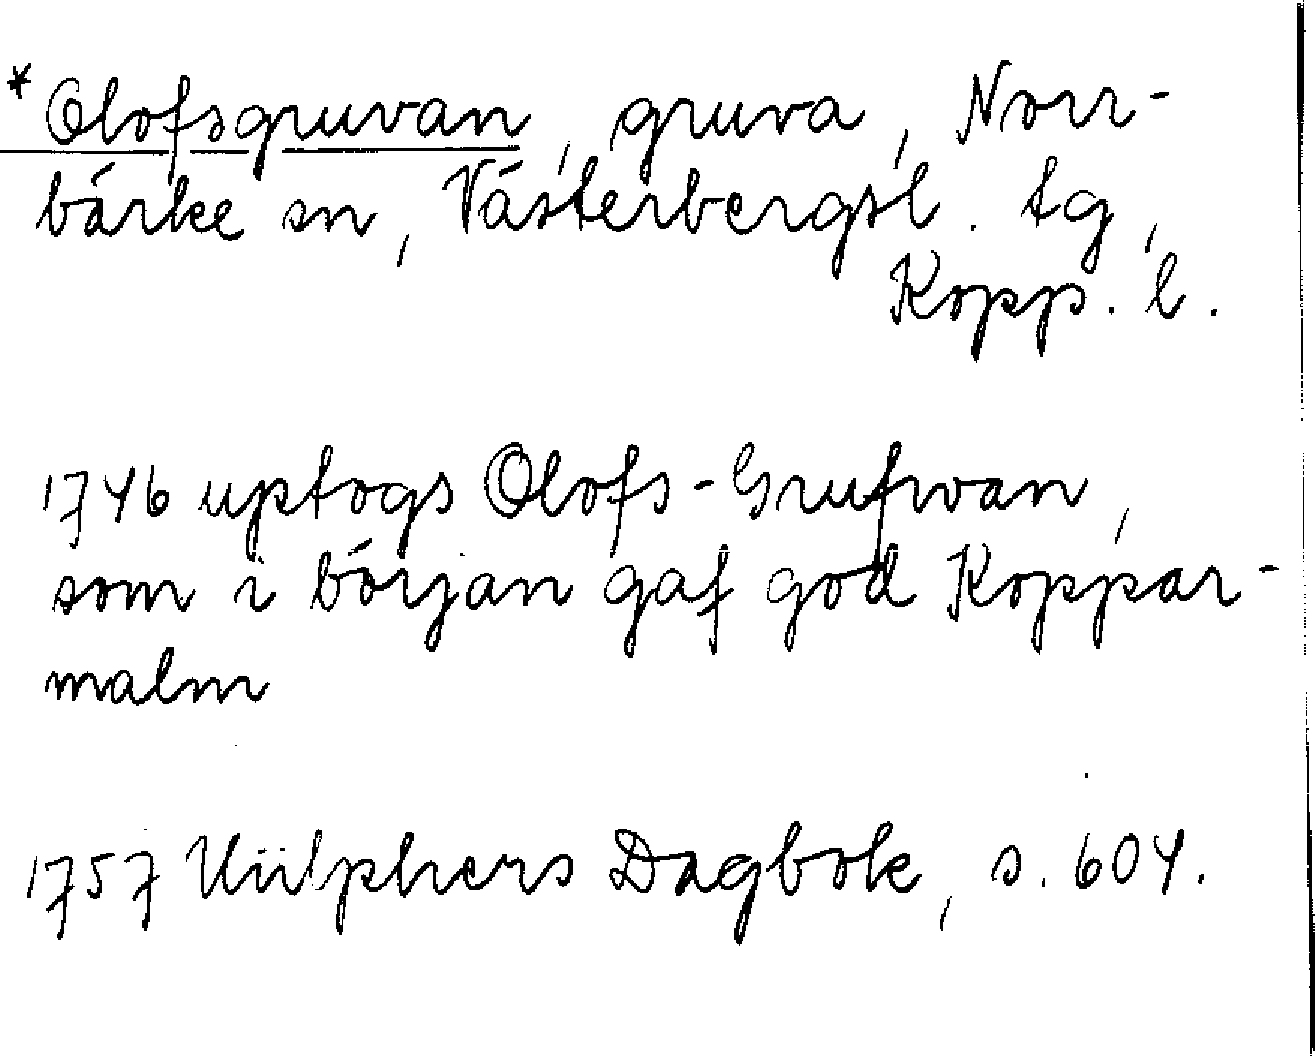 *Olofsgruvan, gruva, Norr-
bärke sn, Västerbergsl. tg,
Kopp. l.
1746 uptogs Olofs-Grufwan,
som i början gaf god Koppar-
malm
1757 Hülphers Dagbok, s. 604.